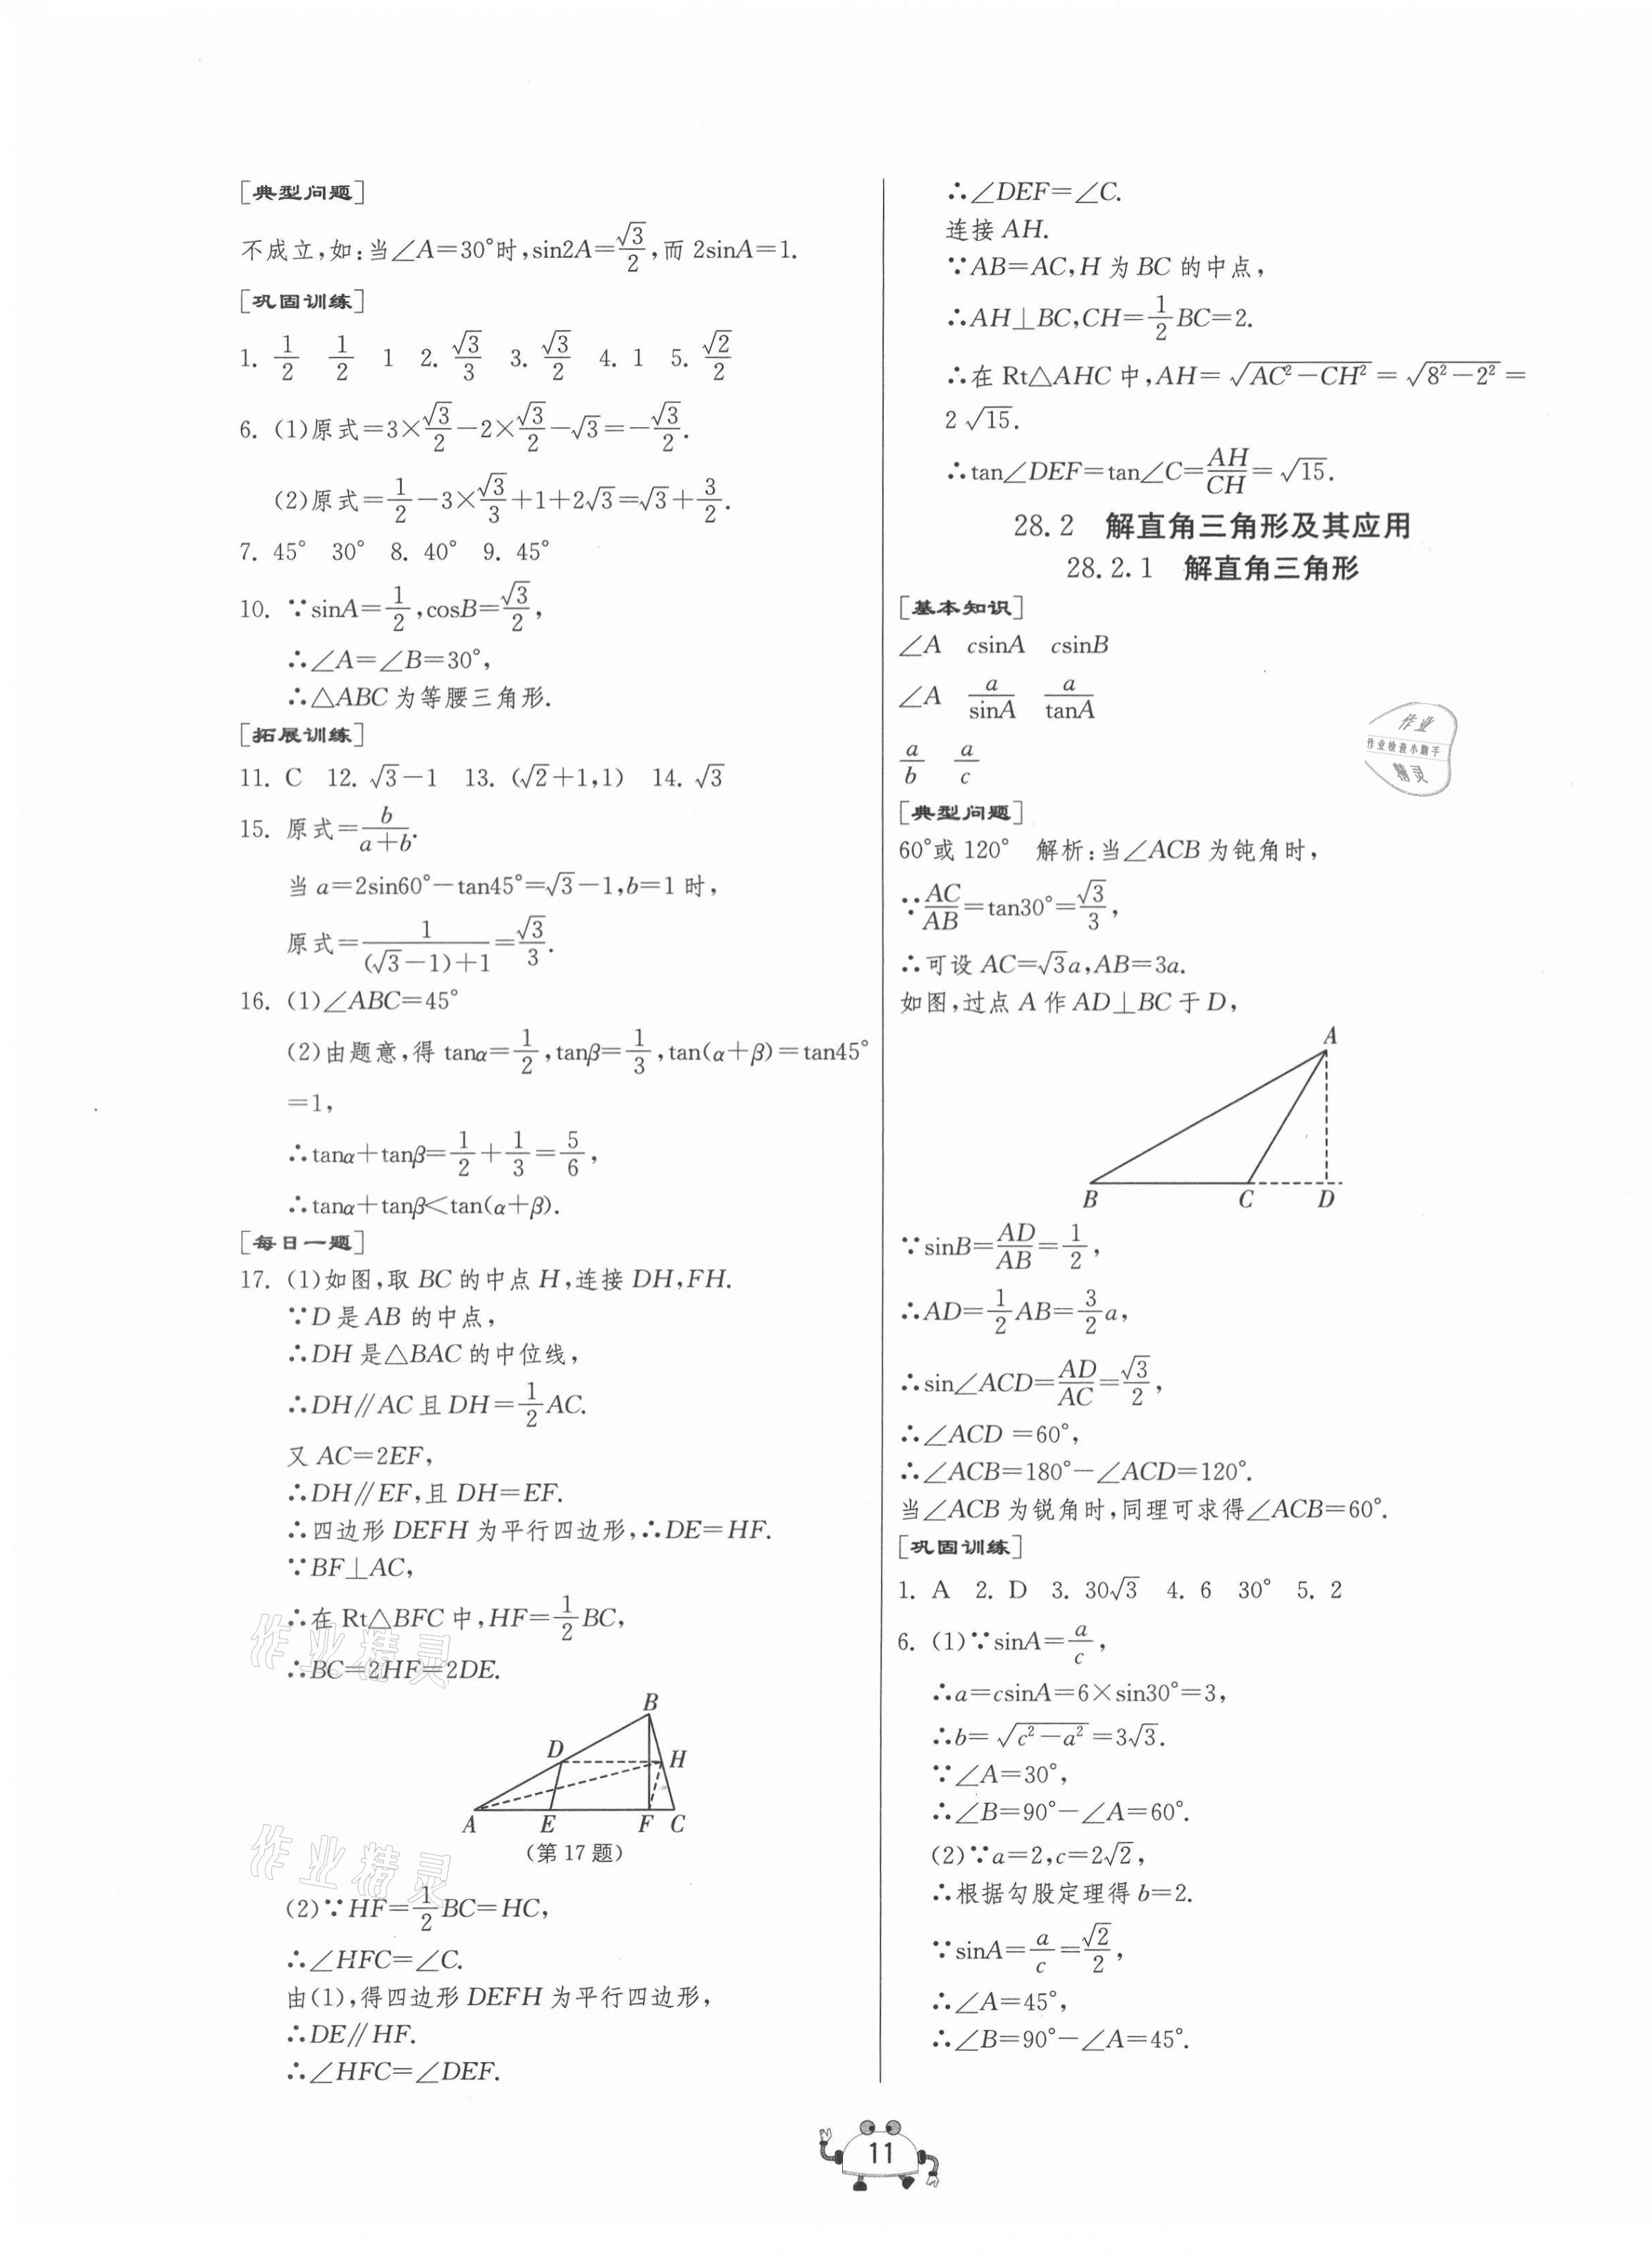 [典型问题]
不成立,如:当∠A=30°时,sin2A=√3/2,而 2sinA=1.
[巩固训练]
1. 1/2  1/2  1  2. √3/3  3. √3/2  4. 1  5. √2/2
6. (1)原式=3×√3/2-2×√3/2-√3=-√3/2.
(2)原式=1/2-3×√3/3+1+2√3=√3+3/2.
7. 45°  30°  8. 40°  9. 45°
10. ∵sinA=1/2,cosB=√3/2,
∴∠A=∠B=30°,
∴△ABC 为等腰三角形.
[拓展训练]
11. C  12. √3-1  13. (√2+1,1)  14. √3
15. 原式=b/(a+b).
当 a=2sin60°-tan45°=√3-1,b=1 时,
原式=1/((√3-1)+1)=√3/3.
16. (1)∠ABC=45°
(2)由题意,得 tanα=1/2,tanβ=1/3,tan(α+β)=tan45°
=1,
∴tanα+tanβ=1/2+1/3=5/6,
∴tanα+tanβ<tan(α+β).
[每日一题]
17. (1)如图,取 BC 的中点 H,连接 DH,FH.
∵D 是 AB 的中点,
∴DH 是△BAC 的中位线,
∴DH∥AC 且 DH=1/2AC.
又 AC=2EF,
∴DH∥EF,且 DH=EF.
∴四边形 DEFH 为平行四边形,∴DE=HF.
∵BF⊥AC,
∴在 Rt△BFC 中,HF=1/2BC,
∴BC=2HF=2DE.
作业精灵
B
D
H
A
E
F
C
(第 17 题)
作业精灵
(2)∵HF=1/2BC=HC,
∴∠HFC=∠C.
由(1),得四边形 DEFH 为平行四边形,
∴DE∥HF.
∴∠HFC=∠DEF.
∴∠DEF=∠C.
连接 AH.
∵AB=AC,H 为 BC 的中点,
∴AH⊥BC,CH=1/2BC=2.
∴在 Rt△AHC 中,AH=√(AC²-CH²)=√(8²-2²)=
2√15.
∴tan∠DEF=tan∠C=AH/CH=√15.
28.2  解直角三角形及其应用
28.2.1  解直角三角形
[基本知识]
∠A  csinA  csinB
∠A  a/sinA  a/tanA
a/b  a/c
作业
作业检查小助手
精灵
[典型问题]
60°或 120°  解析:当∠ACB 为钝角时,
∵AC/AB=tan30°=√3/3,
∴可设 AC=√3a,AB=3a.
如图,过点 A 作 AD⊥BC 于 D,
A
B
C
D
∵sinB=AD/AB=1/2,
∴AD=1/2AB=3/2a,
∴sin∠ACD=AD/AC=√3/2,
∴∠ACD =60°,
∴∠ACB=180°-∠ACD=120°.
当∠ACB 为锐角时,同理可求得∠ACB=60°.
[巩固训练]
1. A  2. D  3. 30√3  4. 6  30°  5. 2
6. (1)∵sinA=a/c,
∴a=csinA=6×sin30°=3,
∴b=√(c²-a²)=3√3.
∵∠A=30°,
∴∠B=90°-∠A=60°.
(2)∵a=2,c=2√2,
∴根据勾股定理得 b=2.
∵sinA=a/c=√2/2,
∴∠A=45°,
∴∠B=90°-∠A=45°.
11